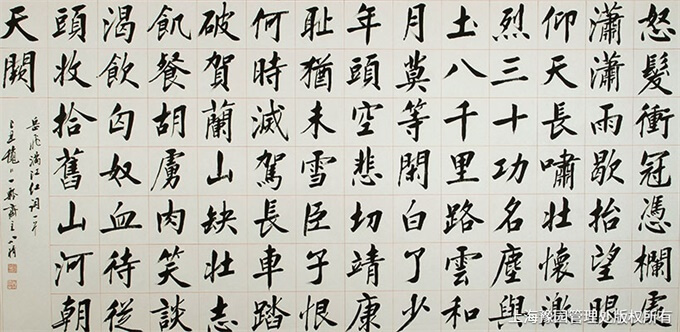 怒髮衝冠憑欄處
瀟瀟雨歇抬望眼
仰天長嘯壯懷激
烈三十功名塵與
土八千里路雲和
月莫等閑白了少
年頭空悲切靖康
耻猶未雪臣子恨
何時滅駕長車踏
破賀蘭山缺壯志
飢餐胡虜肉笑談
渴飲匈奴血待從
頭收拾舊山河朝
天闕
岳飛滿江紅詞一
上海豫园管理处版权所有